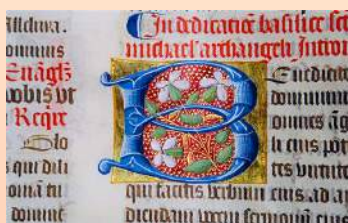 Alleluia.
ominus
Euãgłs
vobis vt
s qui dili
domine
In dedicatiõe basilice
michael archangeli Introit
B Enedicite
dominum
omnes ãg
li eius pot
tes virtute
qui facitis verbum eius ad au
diendam vocem sermonū eius